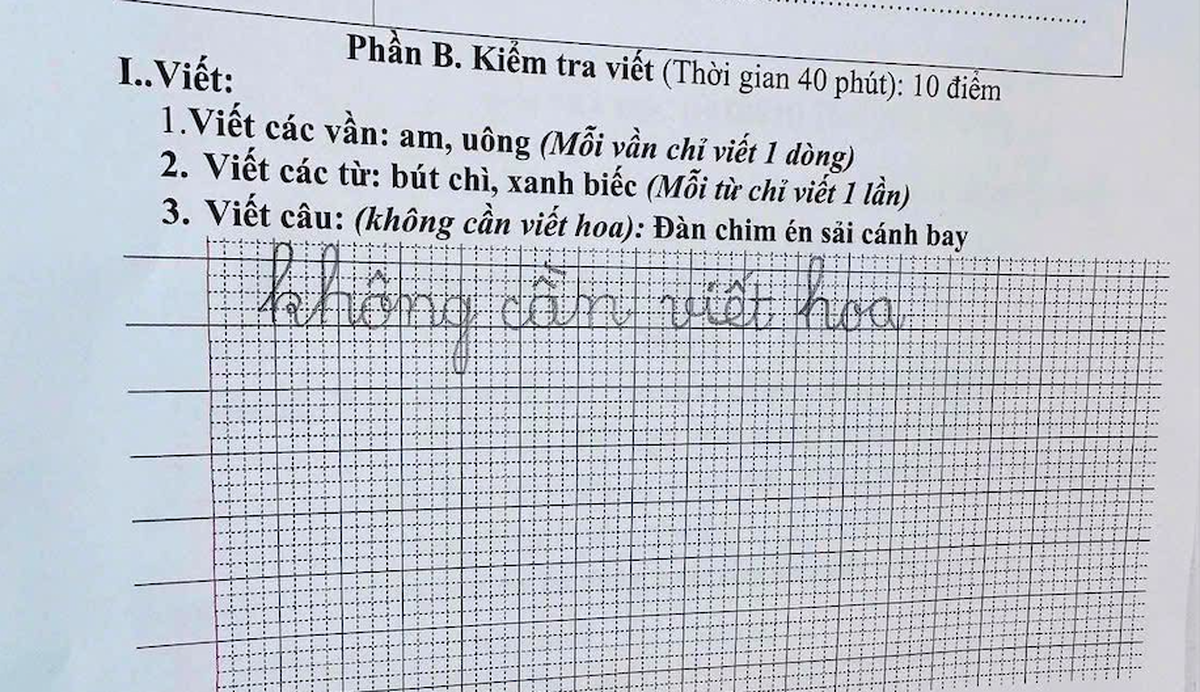 Phần B. Kiểm tra viết (Thời gian 40 phút): 10 điểm
I..Viết:
1.Viết các vần: am, uông (Mỗi vần chỉ viết 1 dòng)
2. Viết các từ: bút chì, xanh biếc (Mỗi từ chỉ viết 1 lần)
3. Viết câu: (không cần viết hoa): Đàn chim én sải cánh bay
không cần viết hoa